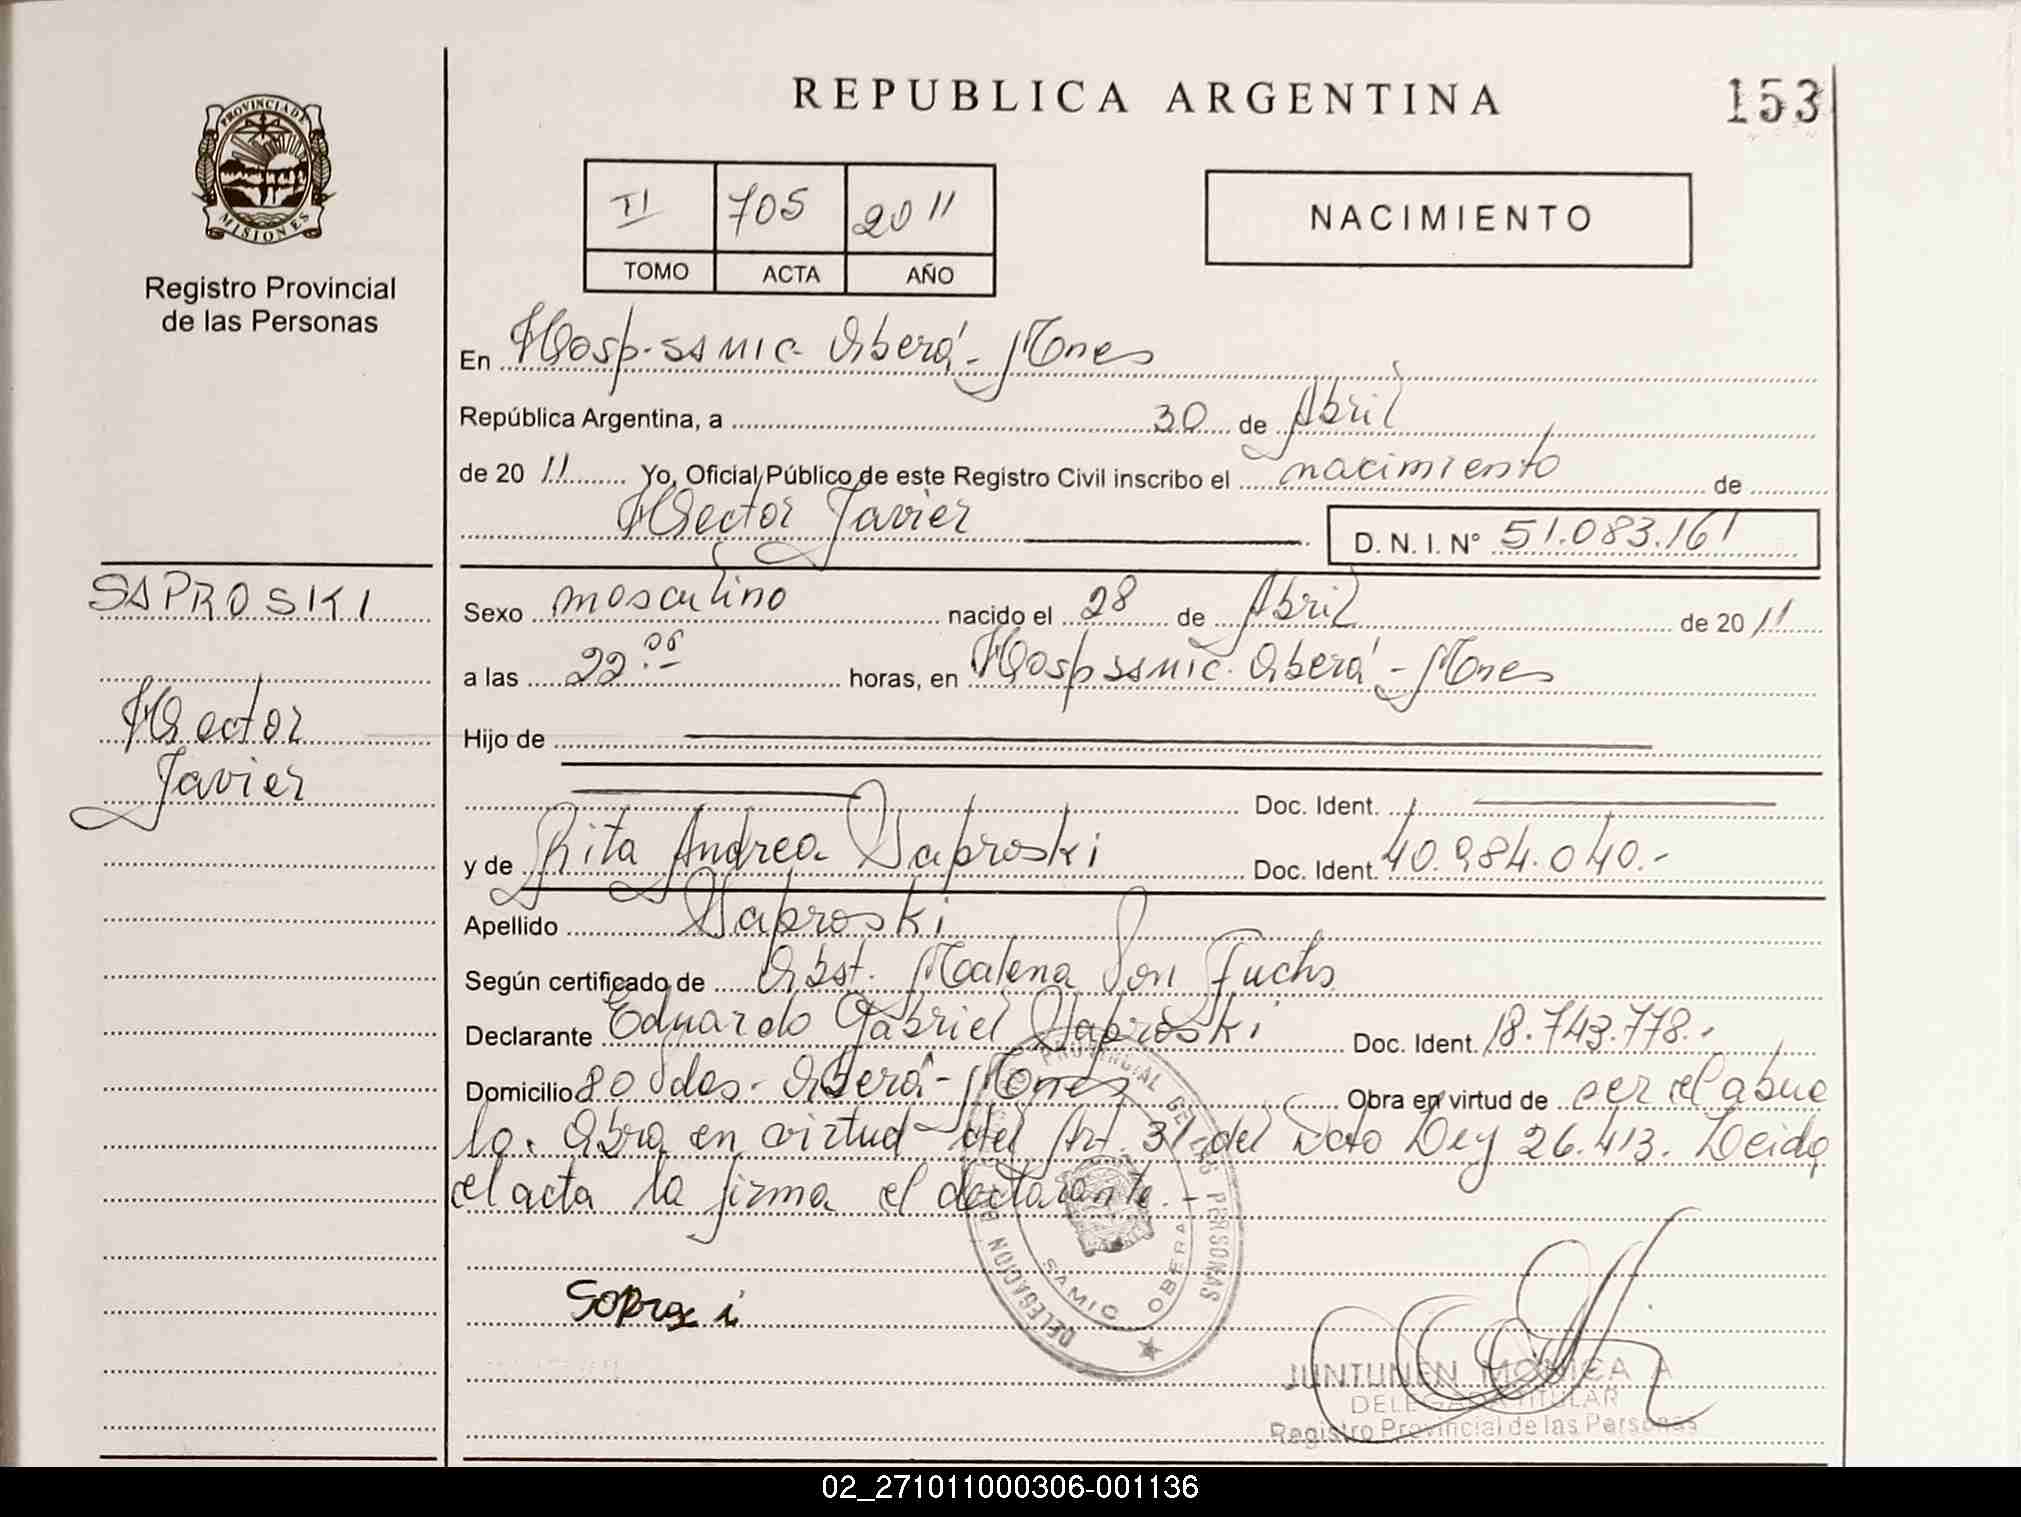 REPUBLICA ARGENTINA
153
PROVINCIA DE
MISIONES
Registro Provincial
de las Personas
II 705 2011
TOMO ACTA AÑO
NACIMIENTO
En Hosp. SAMIC. Oberá - Mnes
República Argentina, a 30 de Abril
de 20 11 Yo, Oficial Público de este Registro Civil inscribo el nacimiento de
Hector Javier D. N. I. N° 51.083.161
SAPROSKI
Hector
Javier
Sexo masculino nacido el 28 de Abril de 20 11
a las 22 horas, en Hosp SAMIC. Oberá - Mnes
Hijo de
Doc. Ident.
y de Rita Andrea Saproski Doc. Ident. 40.984.040.-
Apellido Saproski
Según certificado de Obst. Malena Von Fuchs
Declarante Eduardo Gabriel Saproski Doc. Ident. 18.743.778.-
Domicilio 80 Vdas - Oberá - Mnes Obra en virtud de ser el abue
lo. Obra en virtud del Art. 31 del Dcto Ley 26.413. Leida
el acta la firma el declarante. -
PROVINCIAL DE LAS PERSONAS
DELEGACION
SAMIC OBERA
JUNTUNEN MONICA A
DELEGADA TITULAR
Registro Provincial de las Personas
02_271011000306-001136